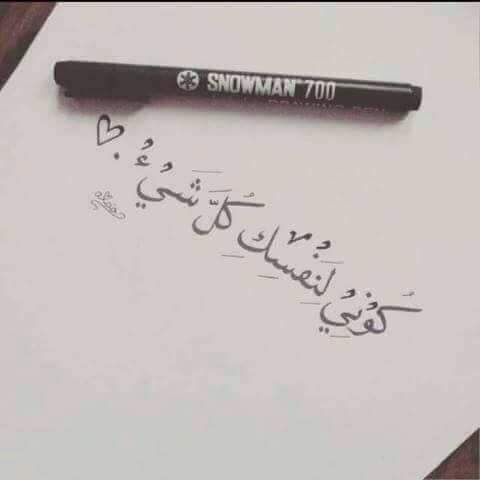 SNOWMAN 700
DRAWING PEN
كُوْنِيْ لِنَفْسِكِ كُلَّ شَيْءٌ.